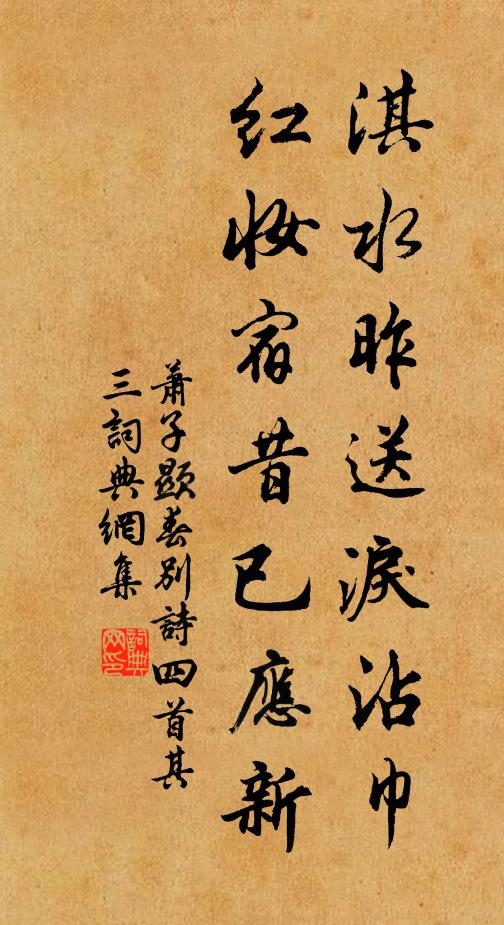 淇水昨送淚沾巾
红妆宿昔已應新
蕭子顯春別詩四首其
三詞典網集
詞典网印